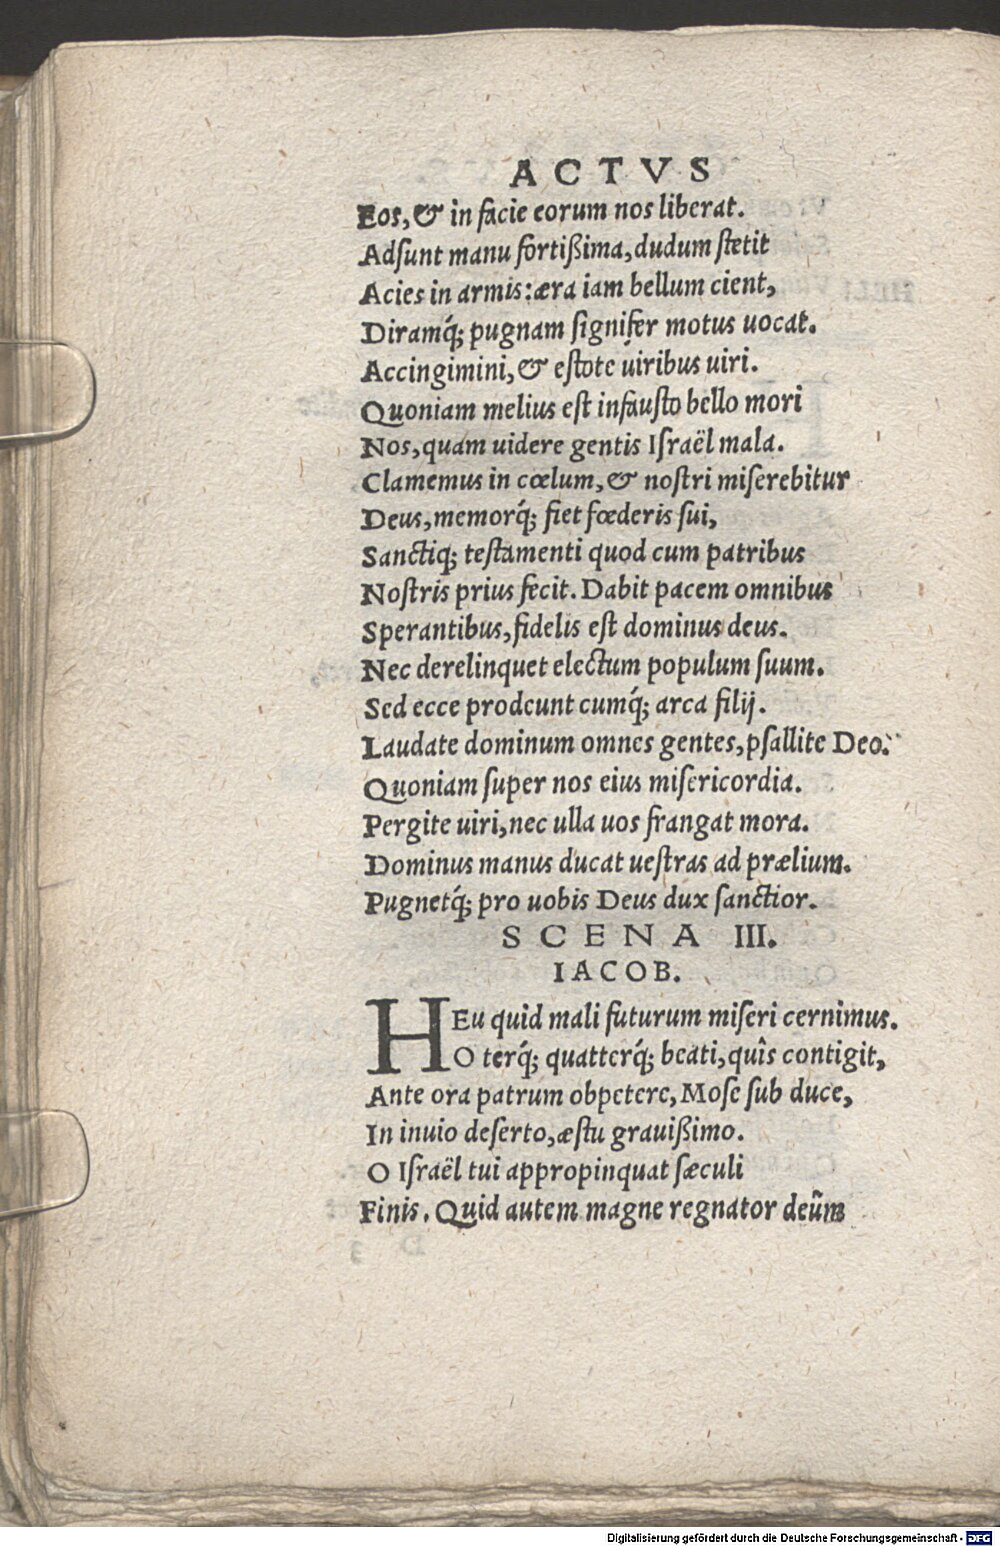 ACTVS
Eos, & in facie eorum nos liberat.
Adſunt manu fortißima, dudum ſtetit
Acies in armis: æra iam bellum cient,
Diramq́; pugnam ſignifer motus uocat.
Accingimini, & eſtote uiribus uiri.
Quoniam melius eſt infauſto bello mori
Nos, quam uidere gentis Iſraël mala.
Clamemus in cœlum, & noſtri miſerebitur
Deus, memorq́; fiet fœderis ſui,
Sanctiq; teſtamenti quod cum patribus
Noſtris prius fecit. Dabit pacem omnibus
Sperantibus, fidelis eſt dominus deus.
Nec derelinquet electum populum ſuum.
Sed ecce prodeunt cumq́; arca filij.
Laudate dominum omnes gentes, pſallite Deo.
Quoniam ſuper nos eius miſericordia.
Pergite uiri, nec ulla uos frangat mora.
Dominus manus ducat ueſtras ad prælium.
Pugnetq́; pro uobis Deus dux ſanctior.
SCENA III.
IACOB.
HEu quid mali futurum miſeri cernimus.
O terq́; quatterq́; beati, quîs contigit,
Ante ora patrum obpetere, Moſe ſub duce,
In inuio deſerto, æſtu grauißimo.
O Iſraël tui appropinquat ſæculi
Finis. Quid autem magne regnator deũm
Digitalisierung gefördert durch die Deutsche Forschungsgemeinschaft - DFG